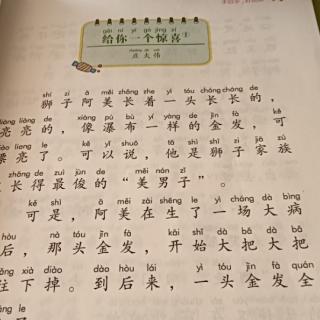 gěi nǐ yí gè jīng xǐ
给你一个惊喜①
zhuāng dà wěi
庄大伟
shī zi ā měi zhǎng zhe yì tóu cháng cháng de
狮子阿美长着一头长长的,
liàng liàng de xiàng pù bù yí yàng de jīn fà kě
亮亮的,像瀑布一样的金发,可
liang le kě yǐ shuō tā shì shī zi jiā zú
漂亮了。可以说,他是狮子家族
zhǎng de zuì jùn de měi nán zǐ
长得最俊的“美男子”。
kě shì ā měi zài shēng le yì chǎng dà bìng
可是,阿美在生了一场大病
hòu nà tóu jīn fà kāi shǐ dà bǎ dà bǎ
后,那头金发,开始大把大把
xià diào dào hòu lái yì tóu jīn fà quán
往下掉。到后来,一头金发全
le